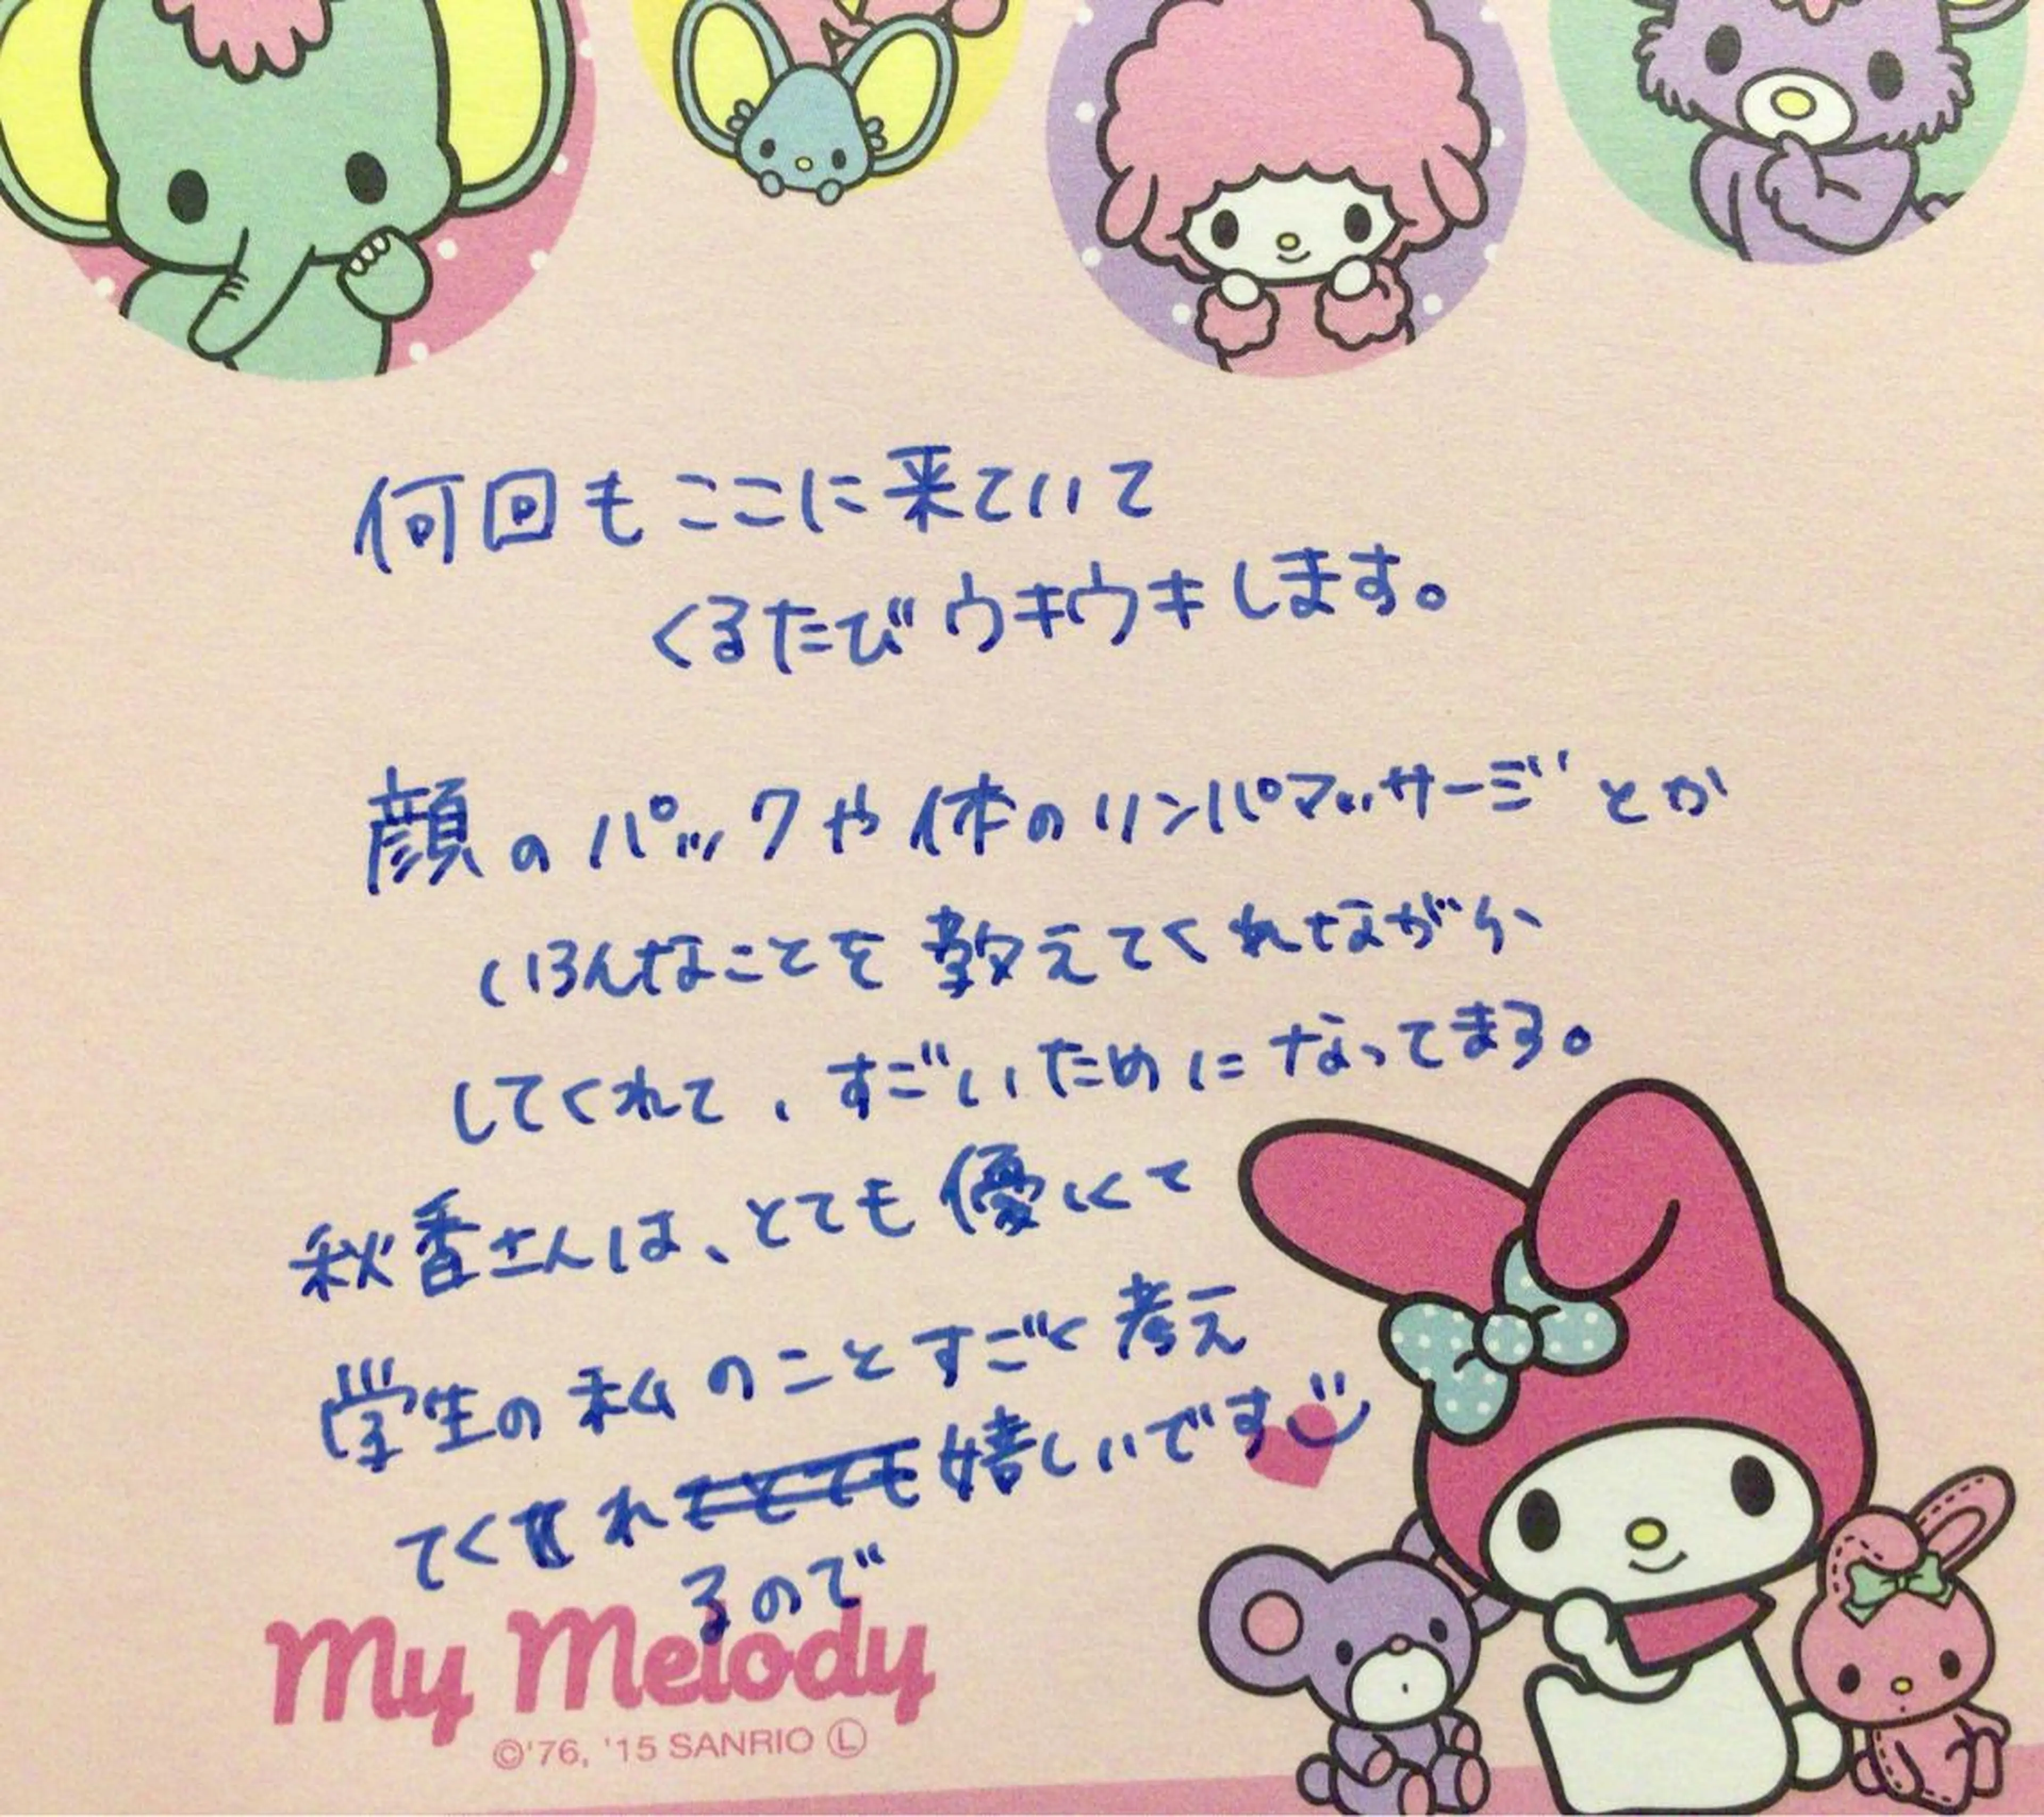 何回もここに来ていて
くるたびウキウキします。
顔のパックや体のリンパマッサージとか
いろんなことを教えてくれながら
してくれて、すごいためになってまる。
秋香さんは、とても優しくて
学生の私のことすごく考え
てくれてとても嬉しいです
るので
My Melody
©'76, '15 SANRIO Ⓛ